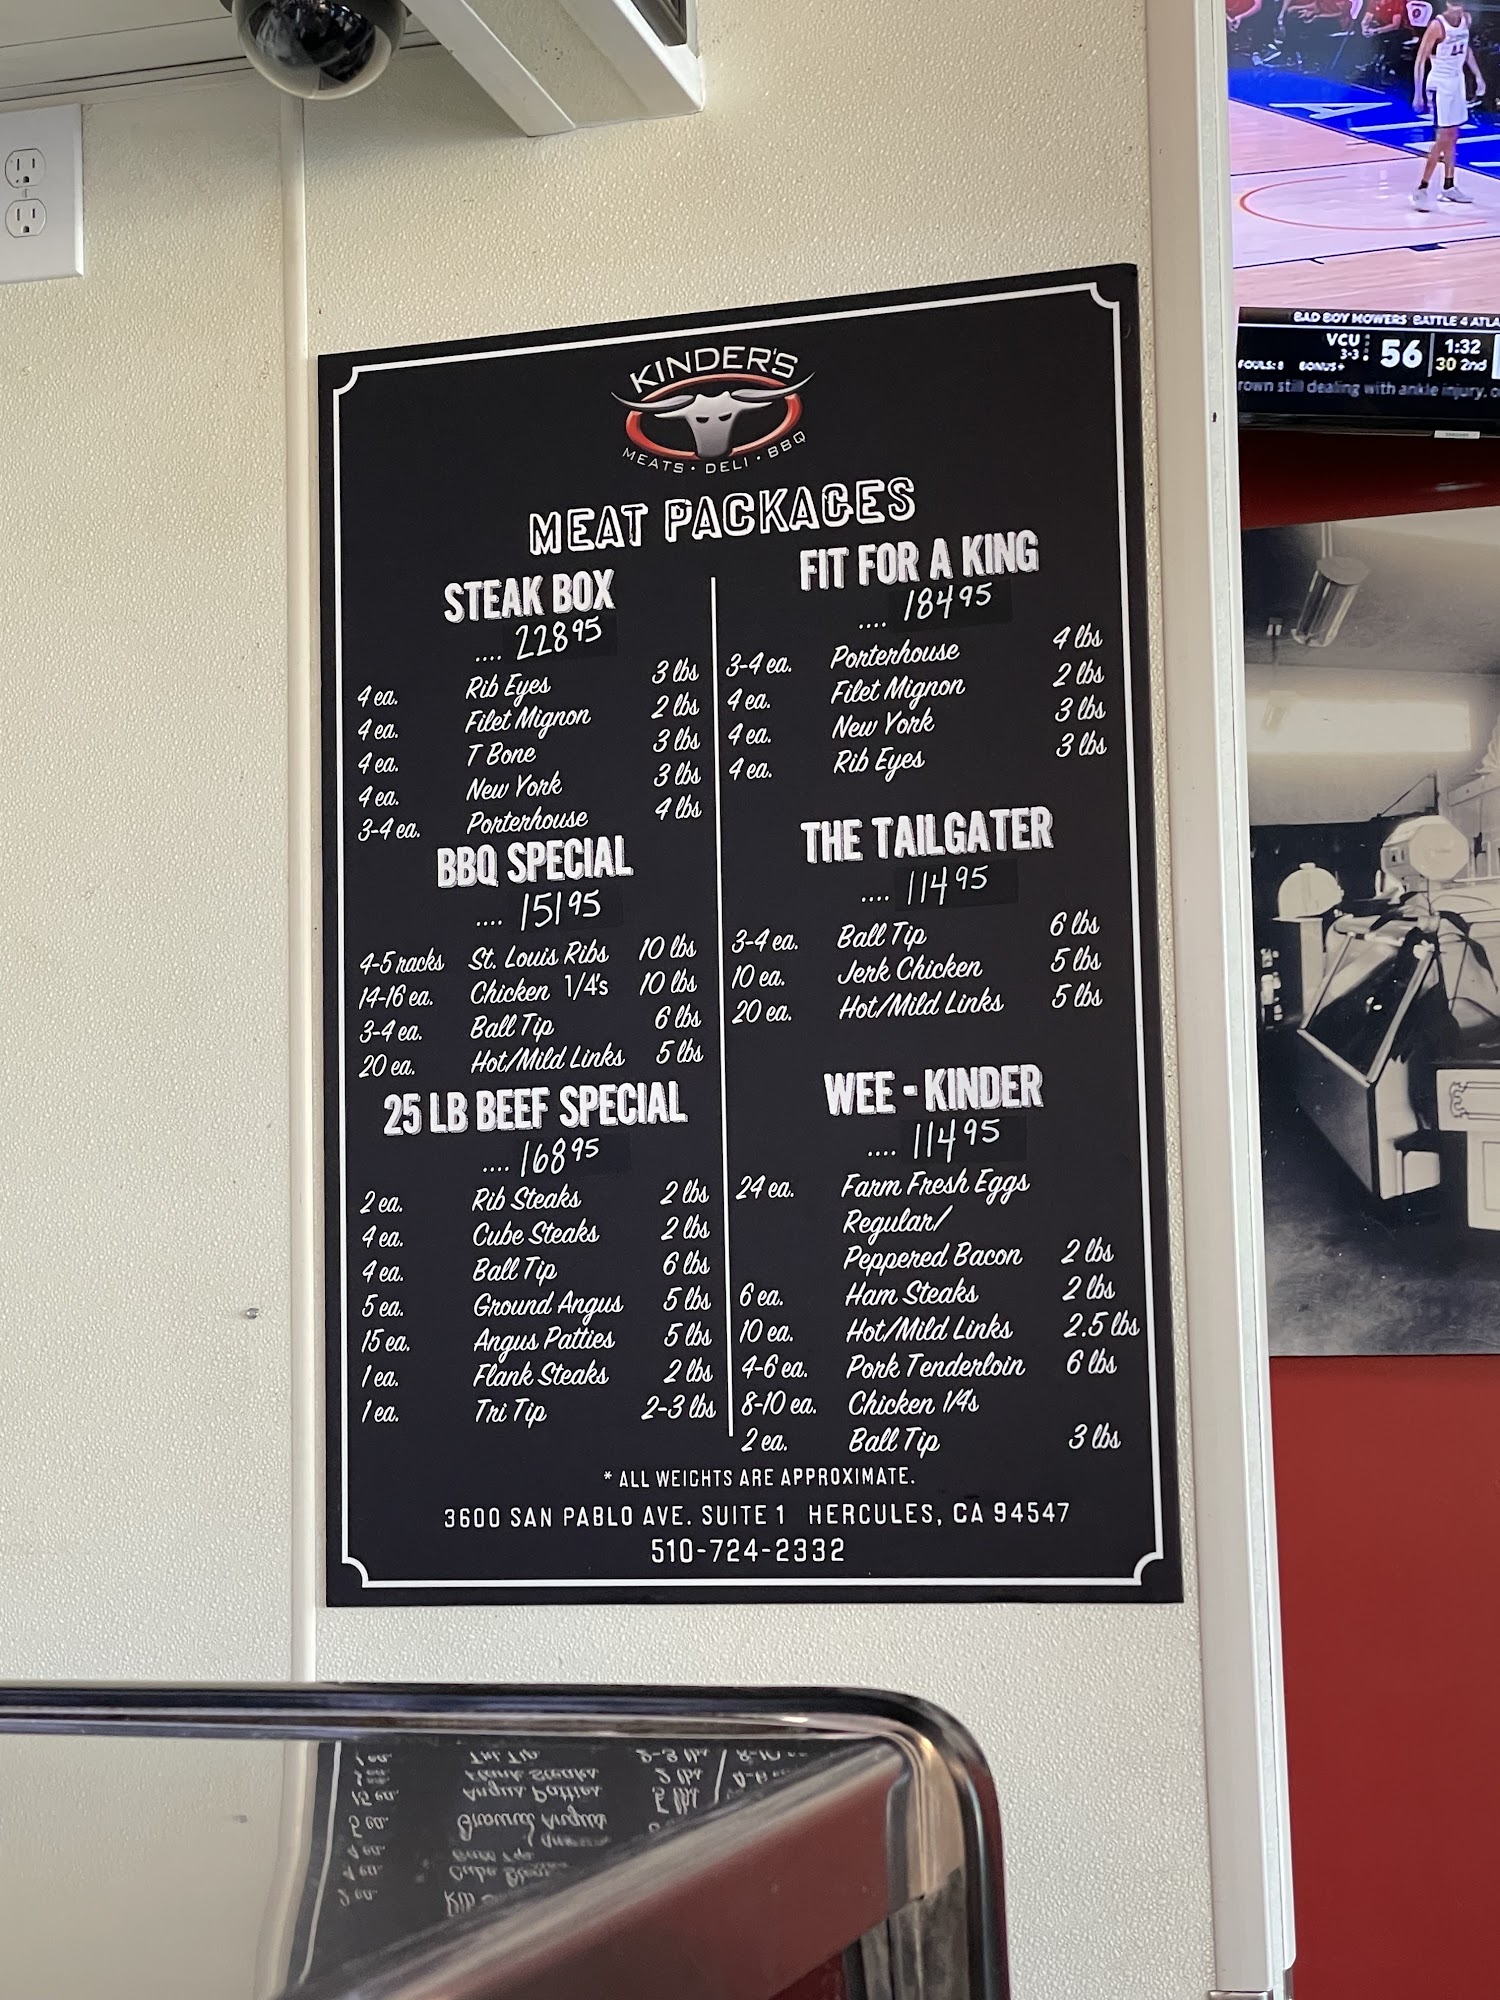 KINDER'S
MEATS · DELI · BBQ
MEAT PACKAGES
STEAK BOX
.... 228 95
4 ea. Rib Eyes 3 lbs
4 ea. Filet Mignon 2 lbs
4 ea. T Bone 3 lbs
4 ea. New York 3 lbs
3-4 ea. Porterhouse 4 lbs
BBQ SPECIAL
.... 151 95
4-5 racks St. Louis Ribs 10 lbs
14-16 ea. Chicken 1/4's 10 lbs
3-4 ea. Ball Tip 6 lbs
20 ea. Hot/Mild Links 5 lbs
25 LB BEEF SPECIAL
.... 168 95
2 ea. Rib Steaks 2 lbs
4 ea. Cube Steaks 2 lbs
4 ea. Ball Tip 6 lbs
5 ea. Ground Angus 5 lbs
15 ea. Angus Patties 5 lbs
1 ea. Flank Steaks 2 lbs
1 ea. Tri Tip 2-3 lbs
FIT FOR A KING
.... 184 95
3-4 ea. Porterhouse 4 lbs
4 ea. Filet Mignon 2 lbs
4 ea. New York 3 lbs
4 ea. Rib Eyes 3 lbs
THE TAILGATER
.... 114 95
3-4 ea. Ball Tip 6 lbs
10 ea. Jerk Chicken 5 lbs
20 ea. Hot/Mild Links 5 lbs
WEE - KINDER
.... 114 95
24 ea. Farm Fresh Eggs
Regular/
Peppered Bacon 2 lbs
6 ea. Ham Steaks 2 lbs
10 ea. Hot/Mild Links 2.5 lbs
4-6 ea. Pork Tenderloin 6 lbs
8-10 ea. Chicken 1/4s
2 ea. Ball Tip 3 lbs
* ALL WEIGHTS ARE APPROXIMATE.
3600 SAN PABLO AVE. SUITE 1 HERCULES, CA 94547
510-724-2332
BAD BOY MOWERS BATTLE 4 ATLA
VCU 56 1:32
3-3 30 2nd
FOULS: 8 BONUS+
rown still dealing with ankle injury, o